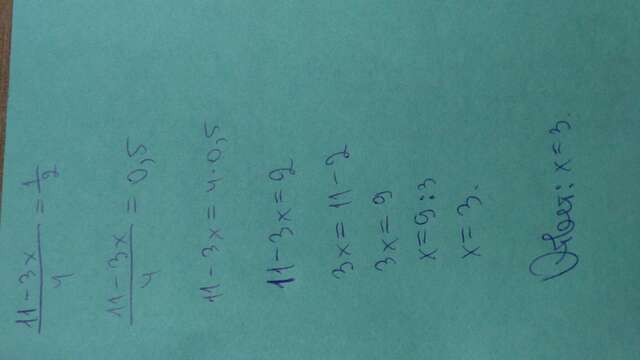 (11-3x)/4 = 1/2
(11-3x)/4 = 0,5
11-3x = 4·0,5
11-3x = 2
3x = 11-2
3x = 9
x = 9:3
x = 3.
Ответ: x = 3.